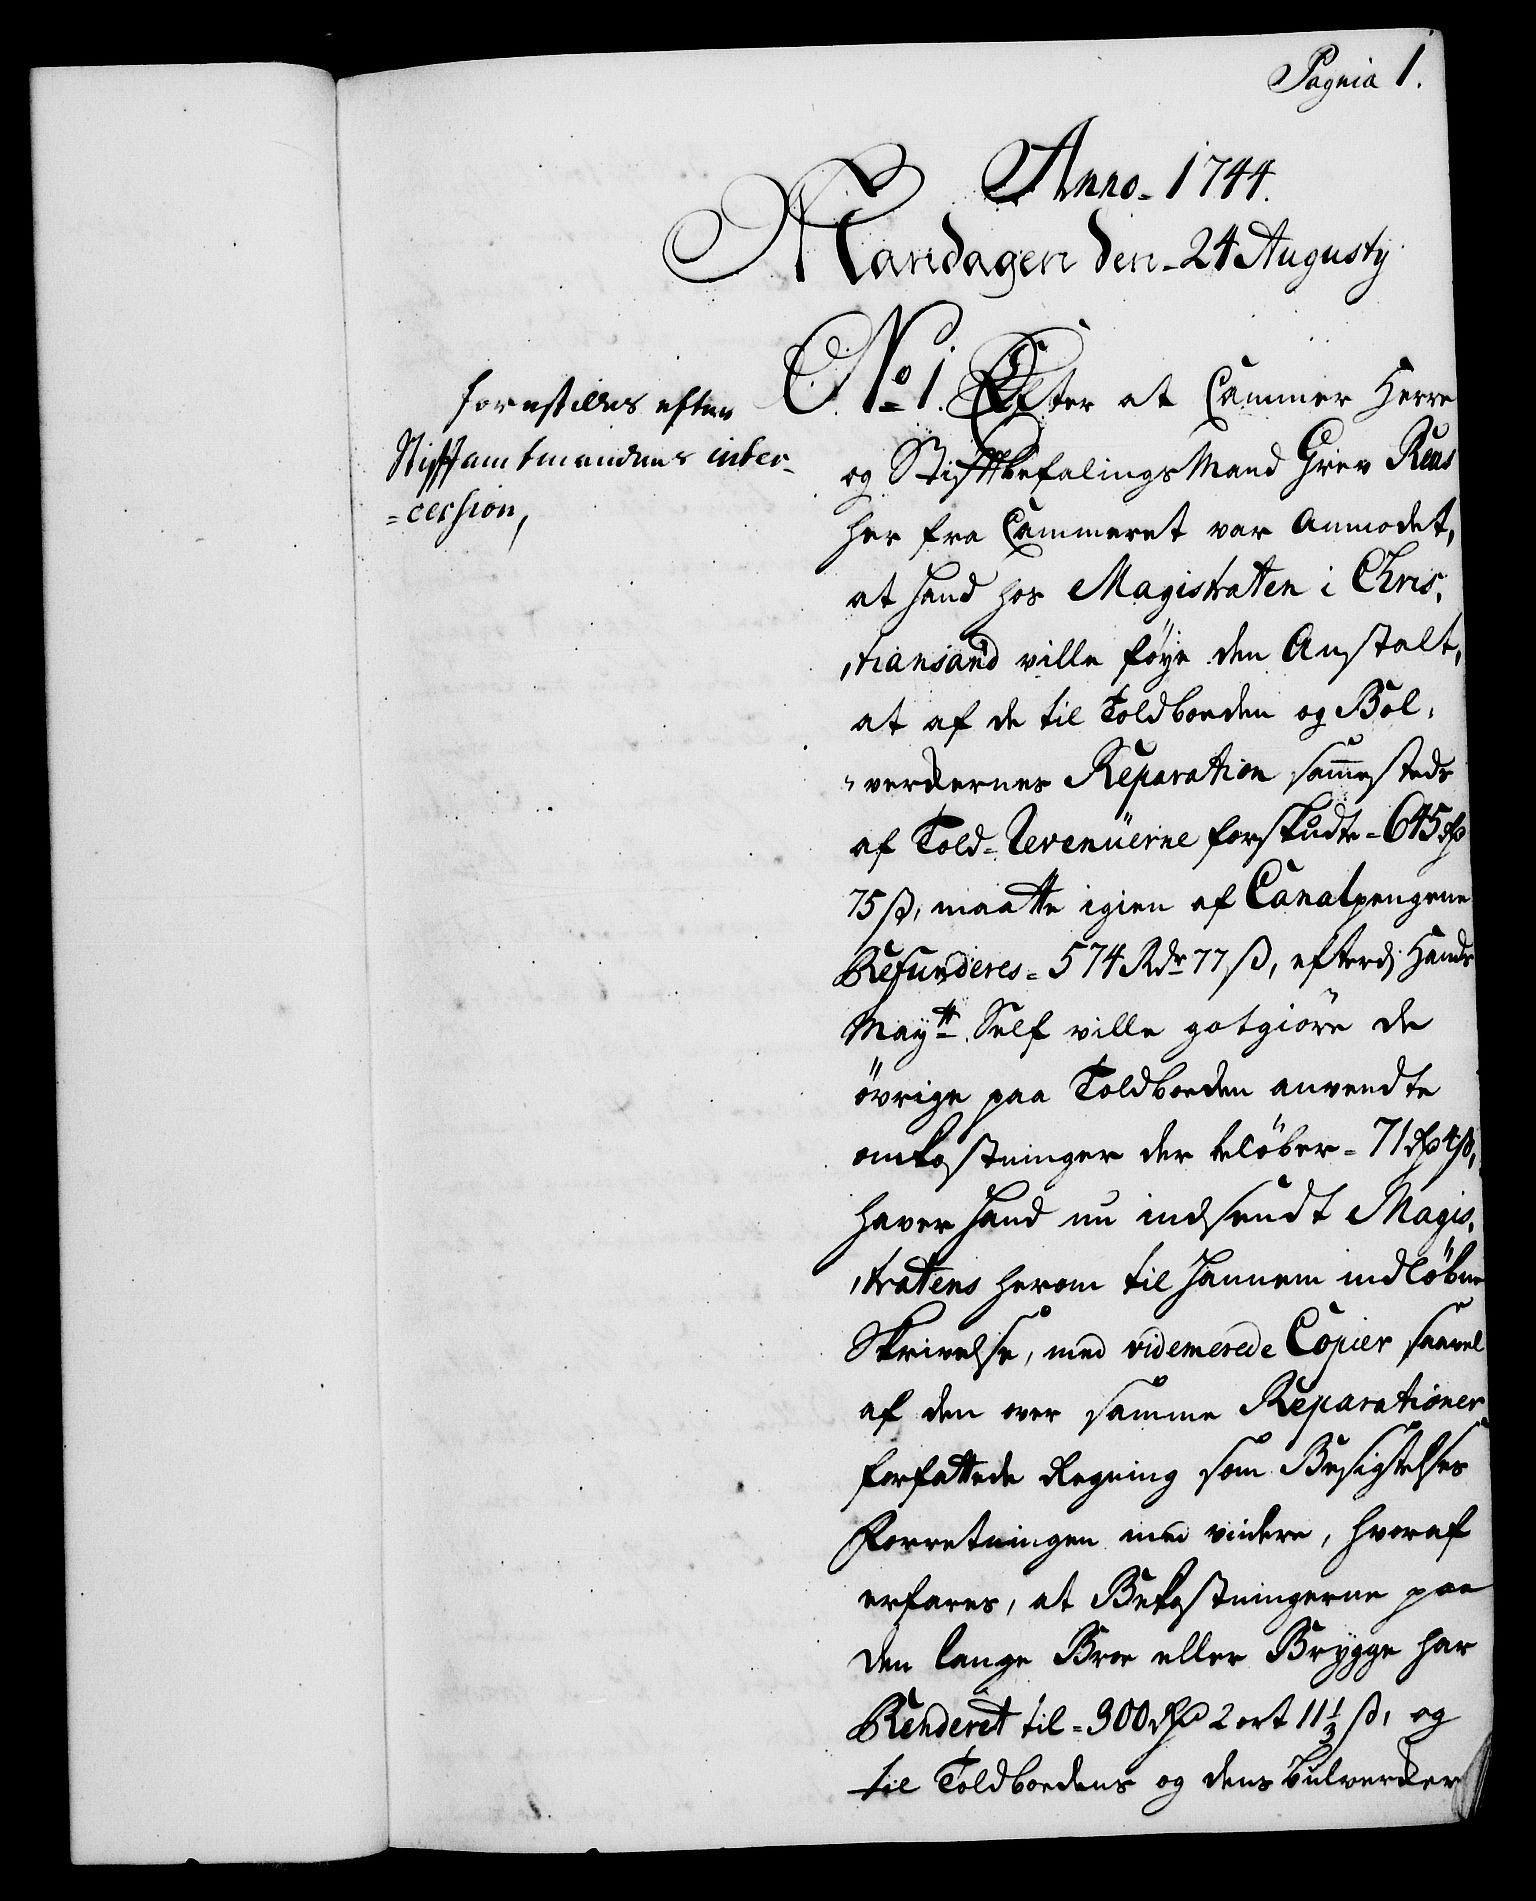 Pagnia 1.
Anno. 1744.
Mandagen den. 24 Augusty
forestilles efter
Stiftamtmandens inter-
=cession,
No. 1. Efter at Cammer Herre
og StiftbefalingsMand Grev Reus
her fra Cammeret var Anmodet,
at Hand hos Magistraten i Chris,
,tiansand ville føye den Anstalt,
at af de til Toldboeden og Bol,
,verckernes Reparation sammesteds
af Told=Revenüerne forskudte = 645 Rdr
75 ß, maatte igien af Canalpengene
Refunderes = 574 Rdr 77 ß, efterdj Hands
Maytt. Self ville gotgiöre de
övrige paa Toldboeden anvendte
omkostninger der belöber = 71 Rdr 4 ß,
haver Hand nu indsendt Magis,
,tratens herom til Hannem indlöbne
Skrivelse, med videmerede Copier saavel
af den over samme Reparationer
forfattede Regning som Besigtelses
Forretningen med videre, hvoraf
erfares, at Bekostningerne paa
den lange Broe eller Brygge har
Renderet til = 300 Rdr 2 ort 11 1/2 ß, og
til Toldboedens og dens bulvercker